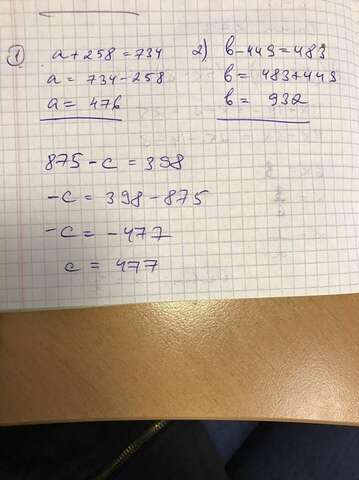 1 a + 258 = 734
a = 734 - 258
a = 476
2) b - 449 = 483
b = 483 + 449
b = 932
875 - c = 398
-c = 398 - 875
-c = -477
c = 477